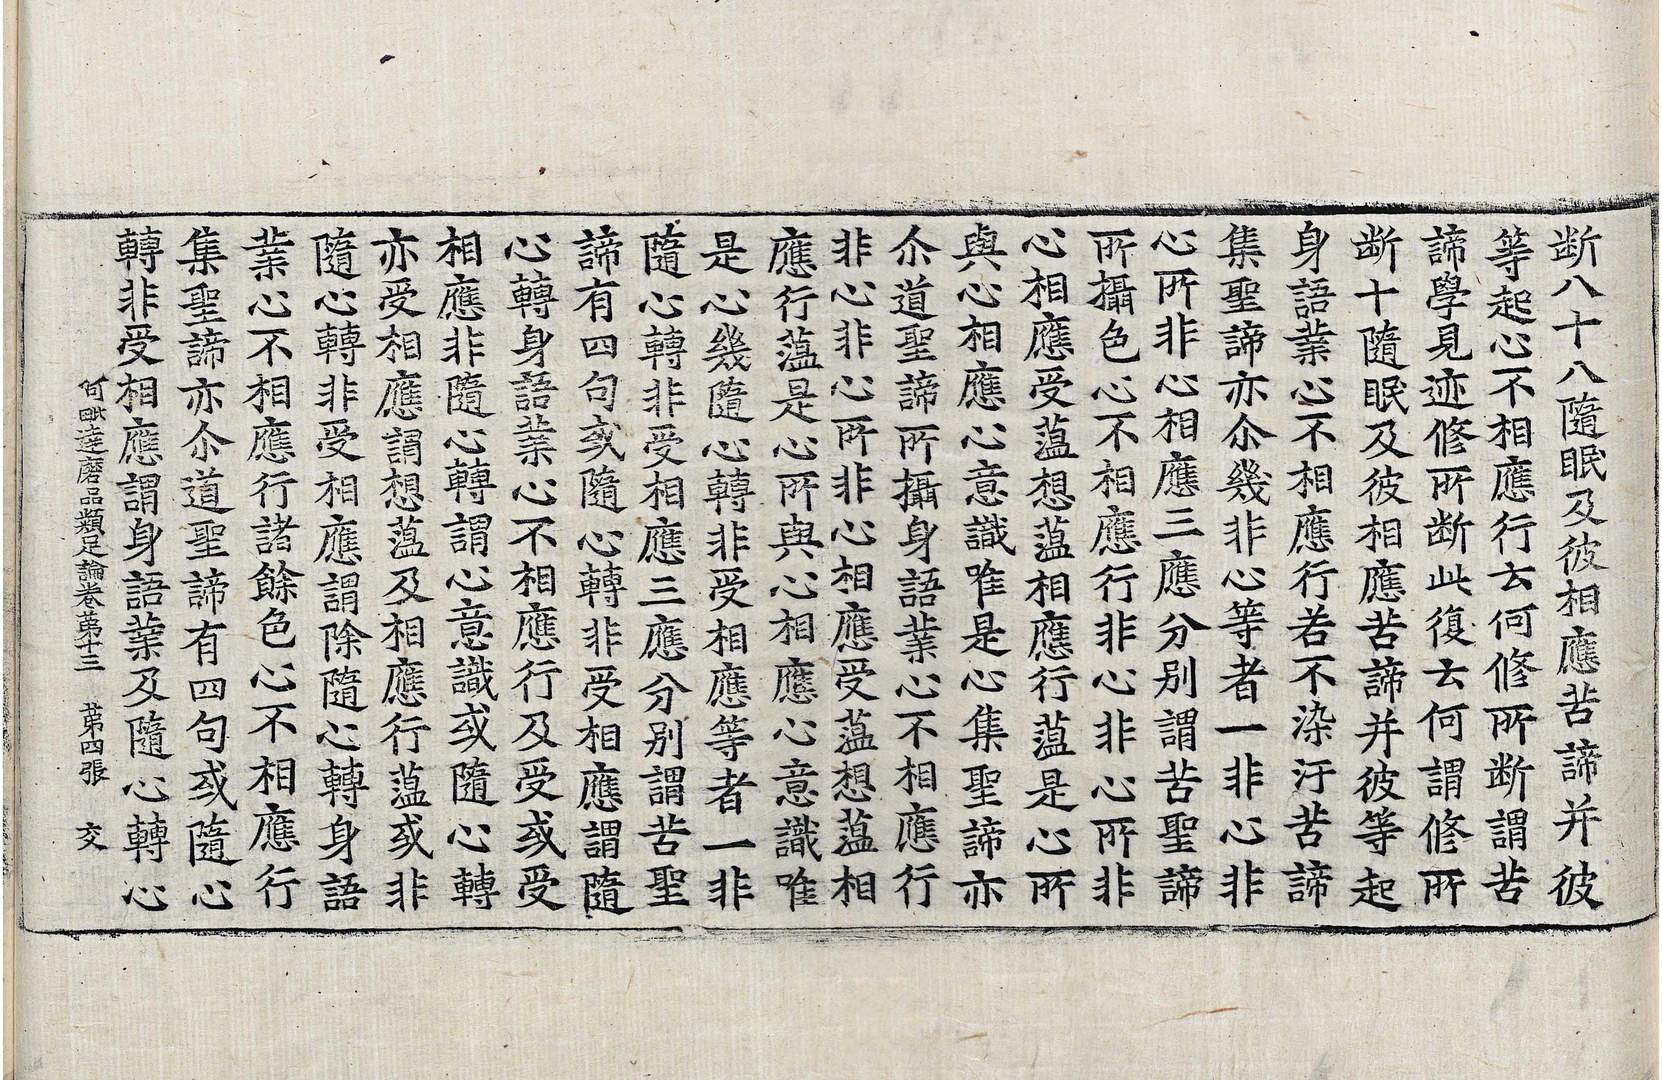 断八十八隨眠及彼相應苦諦并彼
等起心不相應行云何修所断謂苦
諦學見迹修所断此復云何謂修所
断十隨眠及彼相應苦諦并彼等起
身語業心不相應行若不染汙苦諦
集聖諦亦尒幾非心等者一非心非
心所非心相應三應分別謂苦聖諦
所攝色心不相應行非心非心所非
心相應受蕰想蕰相應行蕰是心所
與心相應心意識唯是心集聖諦亦
尒道聖諦所攝身語業心不相應行
非心非心所非心相應受蕰想蕰相
應行蕰是心所與心相應心意識唯
是心幾隨心轉非受相應等者一非
隨心轉非受相應三應分別謂苦聖
諦有四句或隨心轉非受相應謂隨
心轉身語業心不相應行及受或受
相應非隨心轉謂心意識或隨心轉
亦受相應謂想蕰及相應行蕰或非
隨心轉非受相應謂除隨心轉身語
業心不相應行諸餘色心不相應行
集聖諦亦尒道聖諦有四句或隨心
轉非受相應謂身語業及隨心轉心
阿毗達磨品類足論卷苐十三 苐四張 交